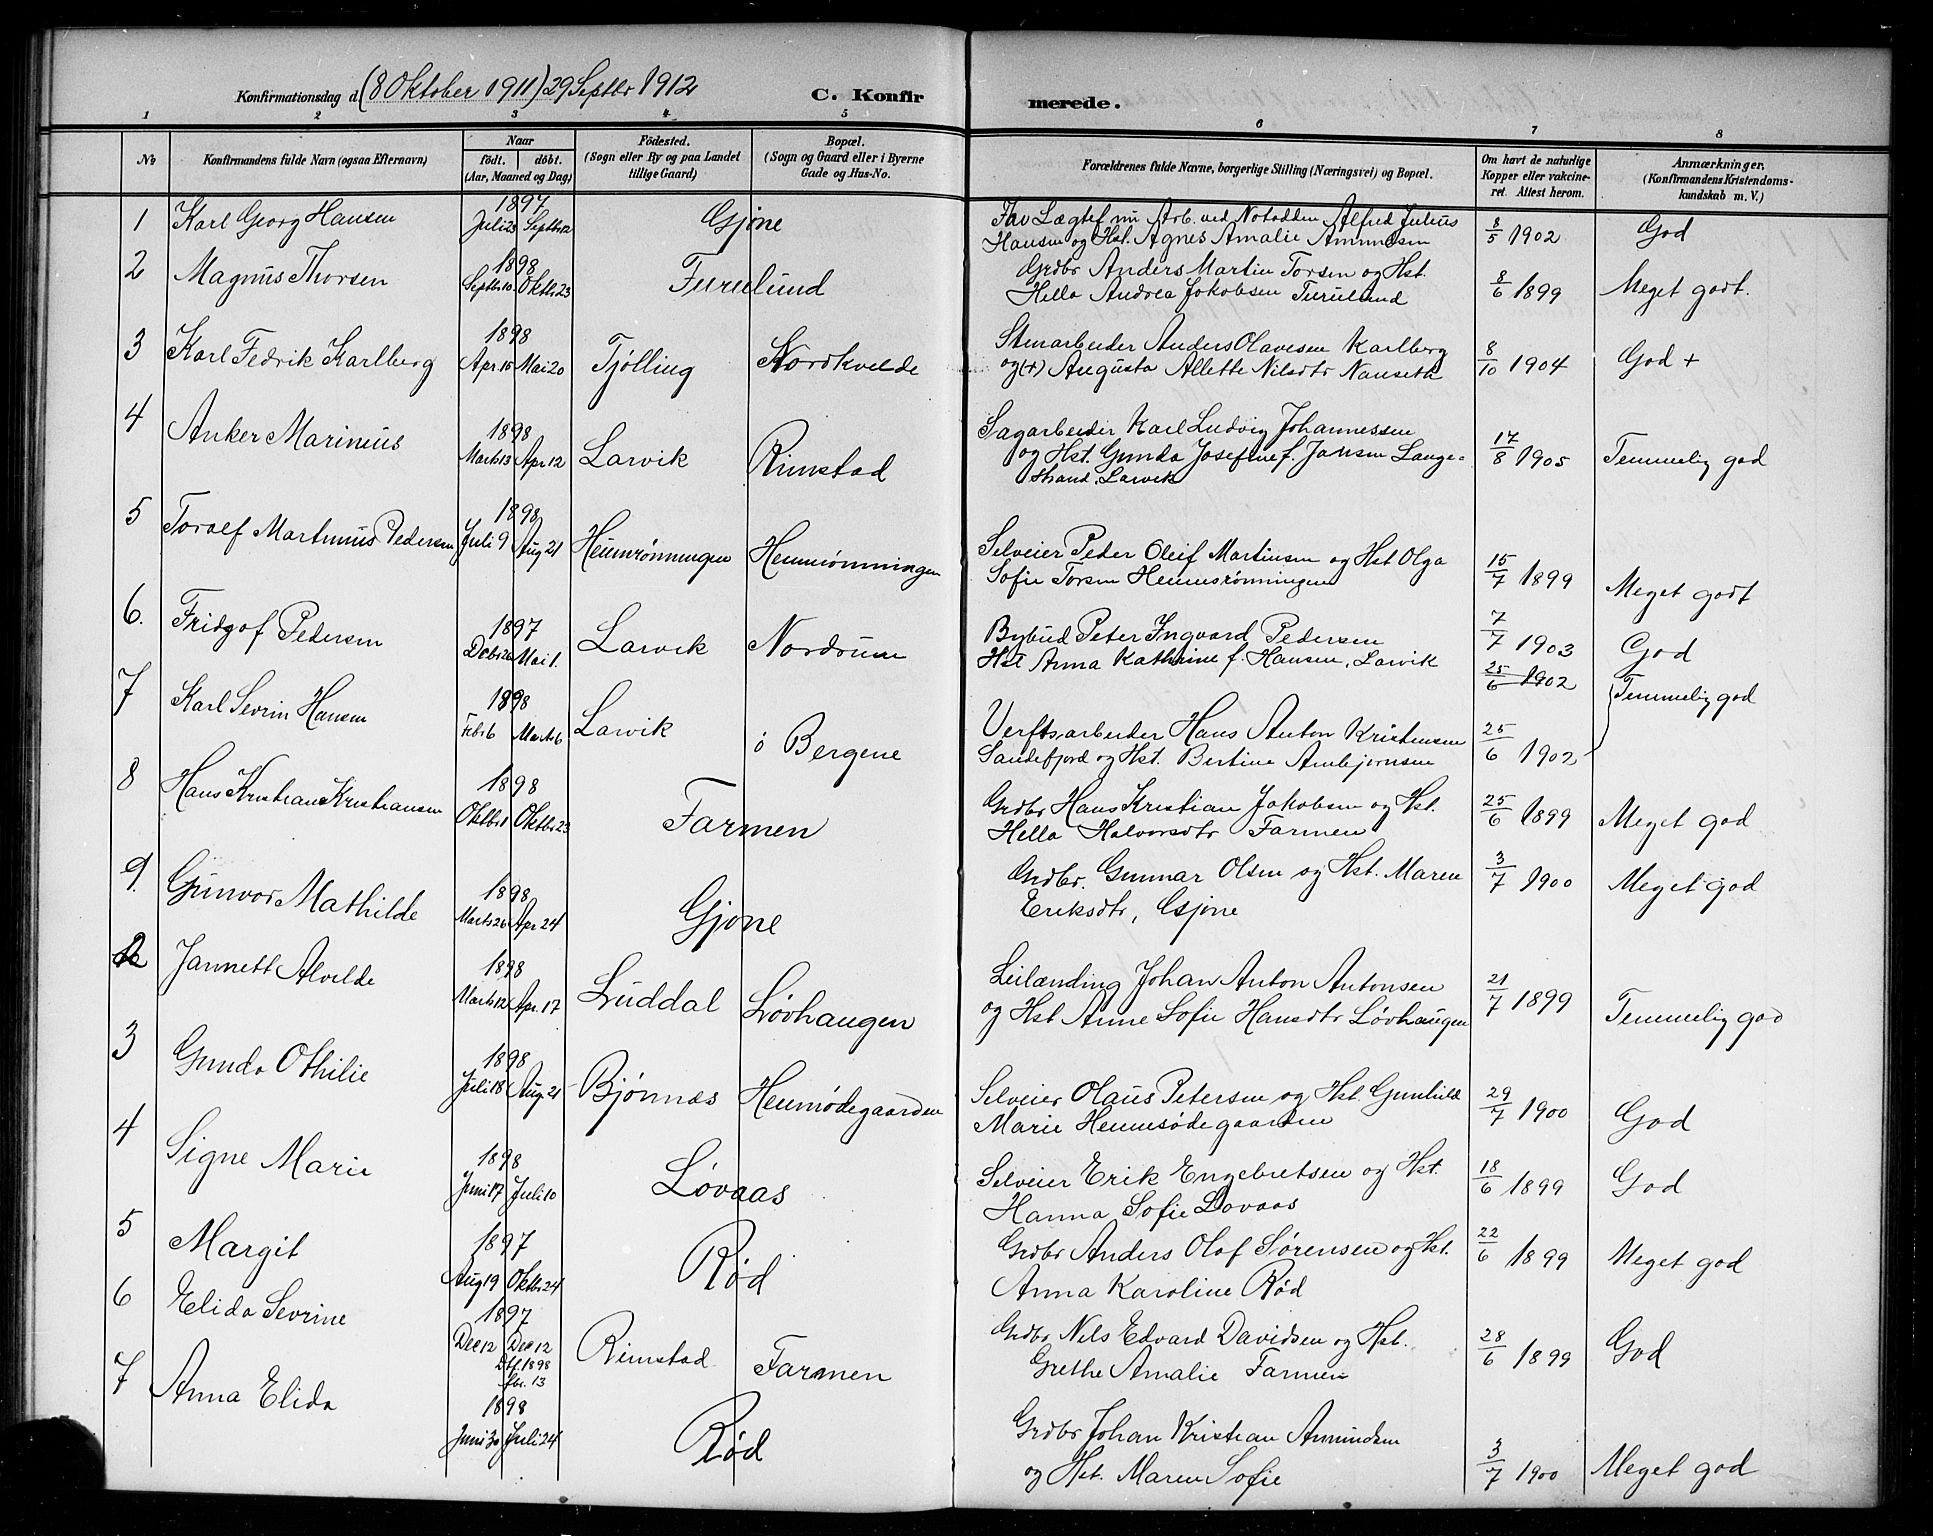 Konfirmationsdag d. (8 Oktober 1911) 29 Septbr 1912
C. Konfir merede.
1 2 3 4 5 6 7 8
No Konfirmandens fulde Navn (ogsaa Efternavn) Naar født. døbt. (Aar, Maaned og Dag) Fødested. (Sogn eller By og paa Landet tillige Gaard) Bopæl. (Sogn og Gaard eller i Byerne Gade og Hus-No. Forældrenes fulde Navne, borgerlige Stilling (Næringsvei) og Bopæl. Om havt de naturlige Kopper eller vakcineret. Attest herom. Anmærkninger. (Konfirmandens Kristendomskundskab m. V.)
1 Karl Georg Hansen 1897 Juli 23 Septbr 12 Gjøne Fav Lægtef nu Arb. ved Notodden Alfred Julius
Hansen og Hst. Agnes Amalie Ammnsen 8/5 1902 God
2 Magnus Thorsen 1898 Septbr 10 Oktbr 23 Furulund Grdbr Anders Martin Torsen og Hst.
Hella Andrea Jakobsen Furulund 8/6 1899 Meget godt.
3 Karl Fedrik Karlberg 1898 Apr. 15 Mai 20 Tjølling Nordkvelde Stenarbeider Anders Olavesen Karlberg
og (+) Augusta Allette Nilsdtr Nanseth 8/10 1904 God +
4 Anker Marinius 1898 Marts 13 Apr 12 Larvik Rimstad Sagarbeider Karl Ludvig Johannessen
og Hst. Gunda Josefine f. Jansen Lange-
strand, Larvik 17/8 1905 Temmelig god
5 Toralf Martinius Pedersen 1898 Juli 9 Aug 21 Hemsrønningen Hemsrønningen Selveier Peder Oleif Martinsen og Hst Olga
Sofie Torsen Hemmsrønningen 15/7 1899 Meget godt
6. Fridgof Pedersen 1897 Dcbr 26 Mai 1. Larvik Nordrum Bybud Peter Ingvard Pedersen
Hst Anna Kathrine f. Hansen, Larvik 7/7 1903 God
25/6 1902
7 Karl Sevrin Hansen 1898 Febr 6 Marts 6 Larvik ö Bergene Verftsarbeider Hans Anton Kristensen
Sandefjord og Hst. Bertine Ambjørnsen 25/6 1902 Temmelig god
8 Hans Kristian Kristiansen 1898 Oktbr 1 Oktbr 23 Farmen Grdbr Hans Kristian Jakobsen og Hst.
Hella Halvorsdtr Farmen 25/6 1899 Meget god
9. Gunvor Mathilde 1898 Marts 26 Apr 24 Gjone Grdbr. Gunnar Olsen og Hst. Maren
Eriksdtr, Gjone 3/7 1900 Meget god
2 Jannett Alvilde 1898 Marts 12 Apr. 17 Luddal Løvhaugen Leilænding Johan Anton Antonsen
og Hst Anne Sofie Hansdtr Løvhaugen 21/7 1899 Temmelig god
3 Gunda Othilie 1898 Juli 18 Aug 21 Bjønnæs Hemsødegaarden Selveier Olaus Petersen og Hst Gunhild
Marie Hemmsødegaarden 29/7 1900 God
4 Signe Marie 1898 Juni 17 Juli 10 Løvaas Selveier Erik Engebretsen og Hst.
Hanna Sofie Lovaas 18/6 1899 God
5 Margit 1897 Aug 19 Oktbr 24 Rød Grdbr Anders Olaf Sørensen og Hst.
Anna Karoline Rød 22/6 1899 Meget god
6 Elida Sevrine 1897 Dec 12 Dec 12 Dtf 1898 fbr. 13 Rimstad Farmen Grdbr Nils Edvard Davidsen og Hst.
Grethe Amalie Farmen 28/6 1899 God
7 Anna Elida 1898 Juni 30 Juli 24 Rød Grdbr Johan Kristian Amundsen
og Hst. Maren Sofie 3/7 1900 Meget god